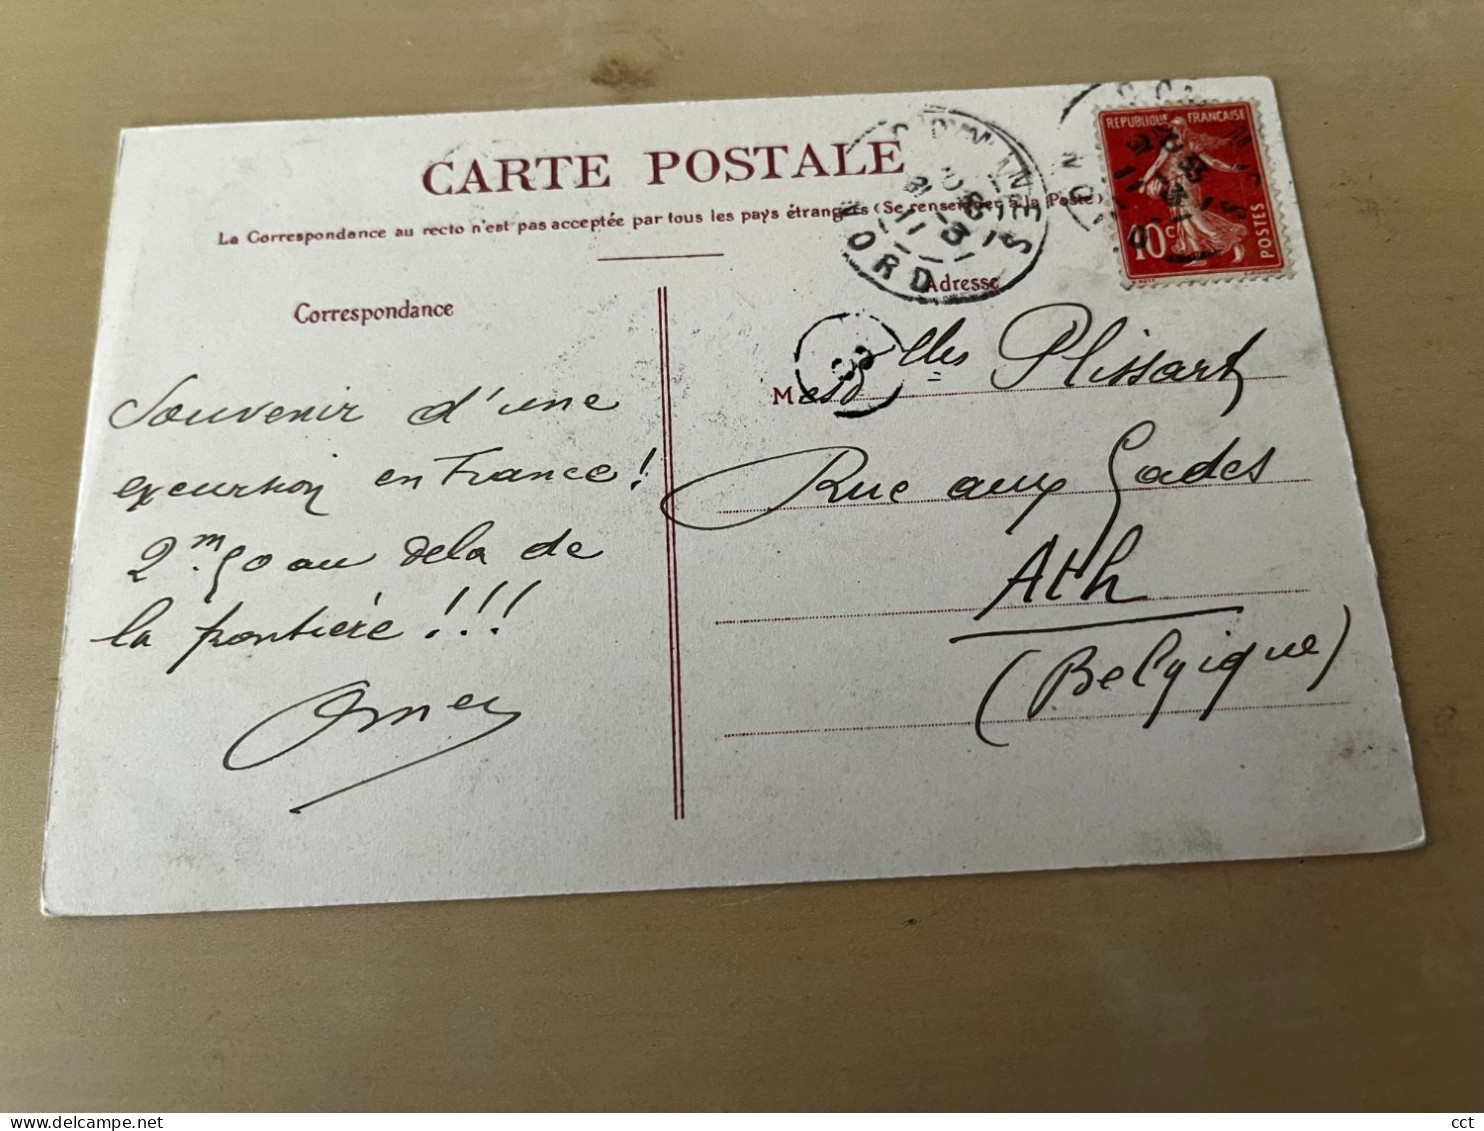 CARTE POSTALE
La Correspondance au recto n'est pas acceptée par tous les pays étrangers (Se renseigner à la Poste)
REPUBLIQUE FRANÇAISE
10c
POSTES
NORD
Correspondance
Adresse
Souvenir d'une
excursion en France!
2.m50 au dela de
la frontière!!!
Omer
Mesdelles Plissart
Rue aux Gades
Ath
(Belgique)
cct